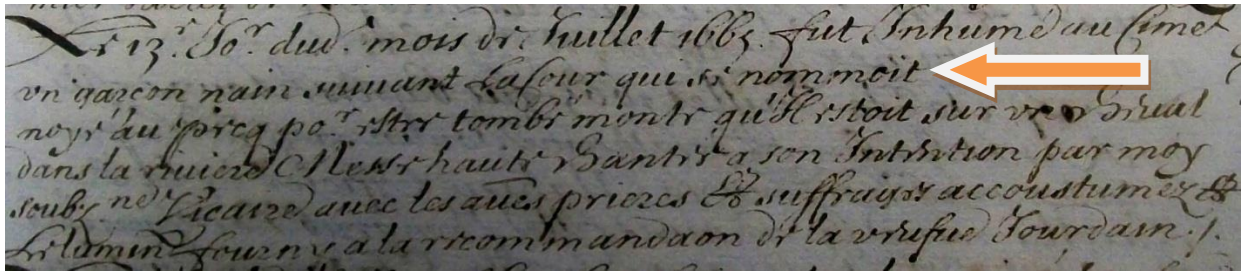 Le 13.r Jo.r dud. mois de Juillet 1665. fut Inhumé au Cimet
vn garcon nain suiuant La Cour qui se nommoit
noyé au pecq po.r estre tombé monté qu'Il estoit sur vn cheual
dans la riuiere Messe haute chantée a son Intention par moy
soubz.né Vicaire auec les aũes prieres & suffrages accoustumez &
Le lumin.e fourny a la recommandaõn de la veufue Jourdain ./.